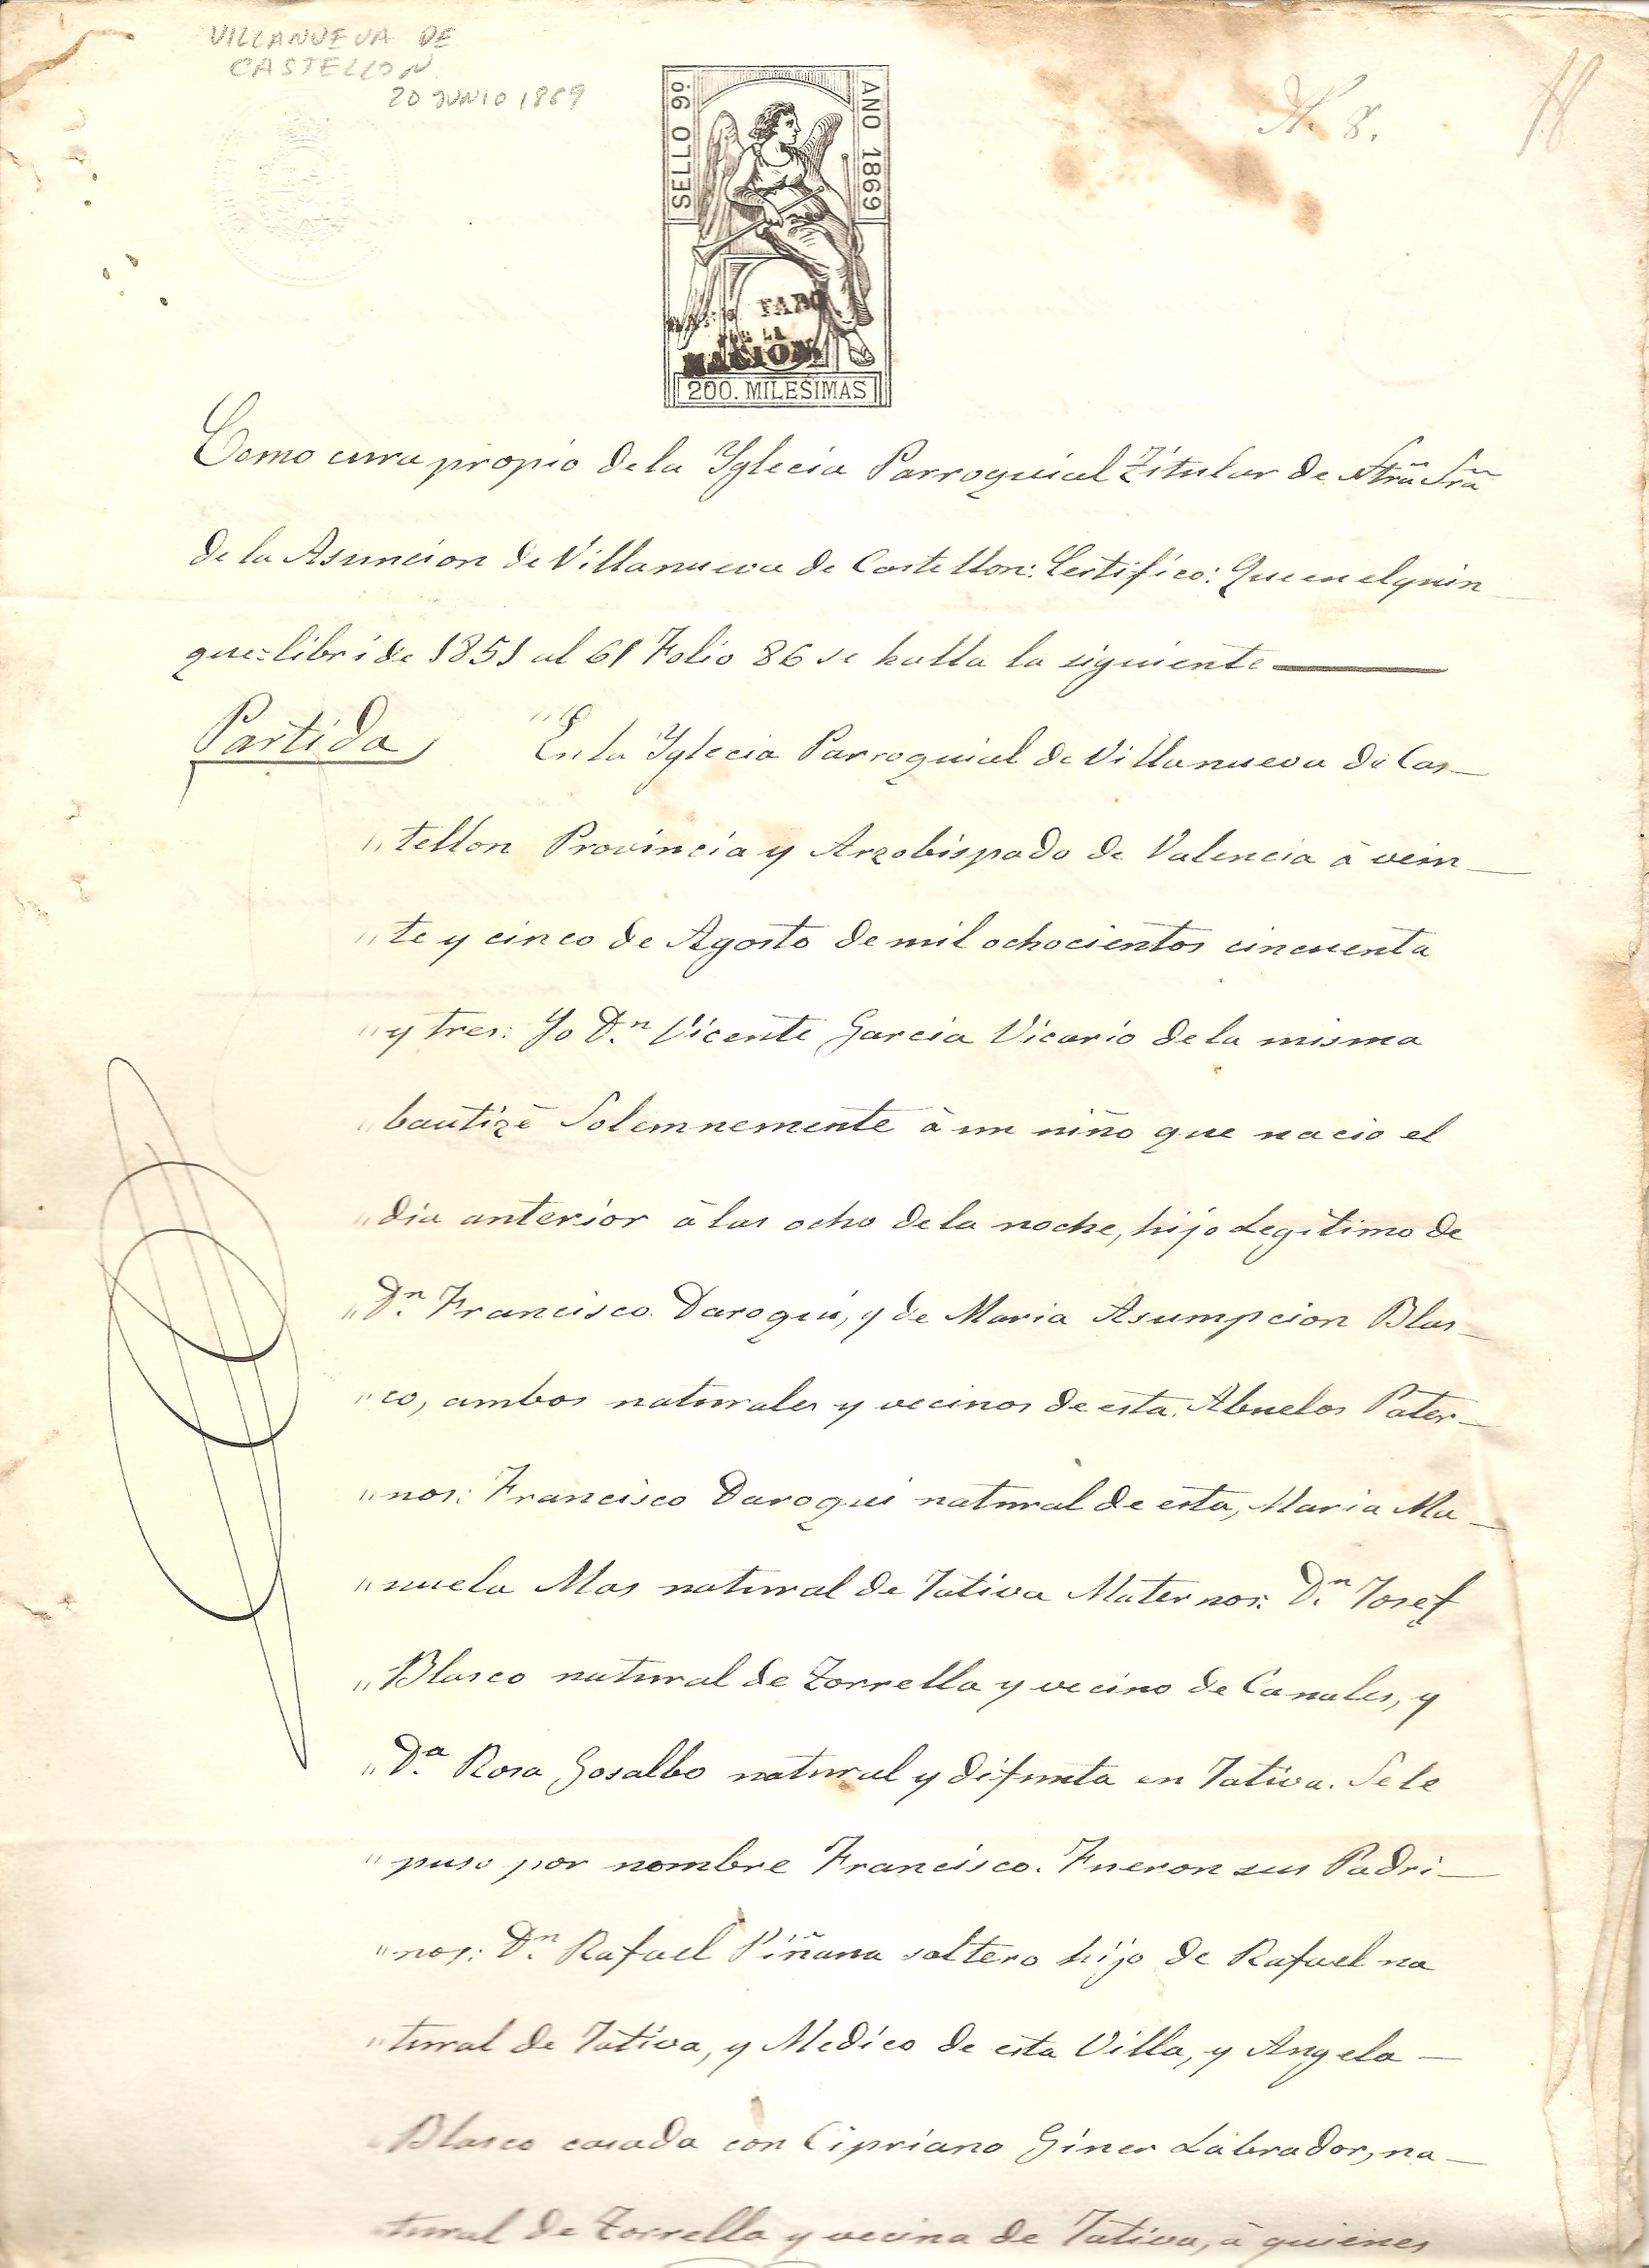 VILLANUEVA DE
CASTELLON
20 JUNIO 1869
N. 8.
SELLO 9º
AÑO 1869
HABILITADO
POR LA
NACION.
200. MILESIMAS
Como cura propio de la Yglecia Parroquial Titular de Ntra Sra
de la Asuncion de Villanueva de Castellon: Certifico: Que en el quin
que=libri de 1851 al 61 Folio 86 se halla la siguiente
Partida
"En la Yglecia Parroquial de Villanueva de Cas-
"tellon Provincia y Arzobispado de Valencia à vein-
"te y cinco de Agosto de mil ochocientos cincuenta
"y tres: Yo D.n Vicente Garcia Vicario de la misma
"bautizè Solemnemente à un niño que nacio el
"dia anterior à las ocho de la noche, hijo Legitimo de
"D.n Francisco Daroqui, y de Maria Asumpcion Blas-
"co, ambos naturales y vecinos de esta. Abuelos Pater-
"nos: Francisco Daroqui natural de esta, Maria Ma-
"nuela Mas natural de Jativa Maternos: D.n Josef
"Blasco natural de Torrella y vecino de Canales, y
"D.a Rosa Gosalbo natural y difunta en Jativa. Se le
"puso por nombre Francisco. Fueron sus Padri-
"nos: D.n Rafael Piñana soltero hijo de Rafael na
"tural de Jativa, y Medico de esta Villa, y Angela -
"Blasco casada con Cipriano Giner Labrador, na-
"tural de Torrella y vecina de Jativa, à quienes